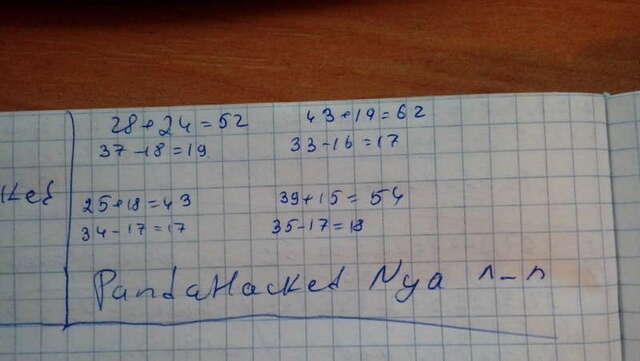 28+24=52 43+19=62
37-18=19 33-16=17
25+18=43 39+15=54
34-17=17 35-17=18
PandaHacked Nya n_n